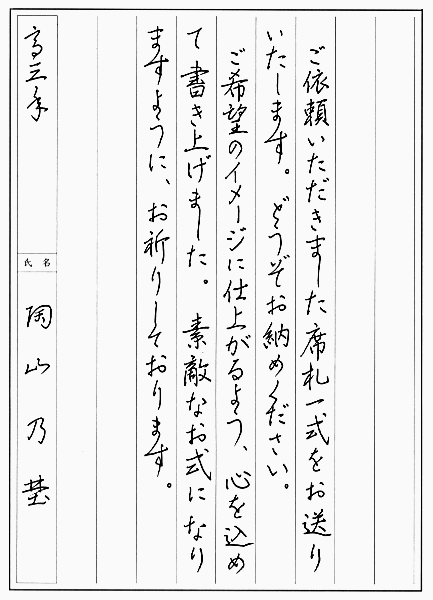 ご依頼いただきました席札一式をお送り
いたします。どうぞお納めください。
ご希望のイメージに仕上がるよう、心を込め
て書き上げました。素敵なお式になり
ますように、お祈りしております。
高三年
氏名
陶山乃埜